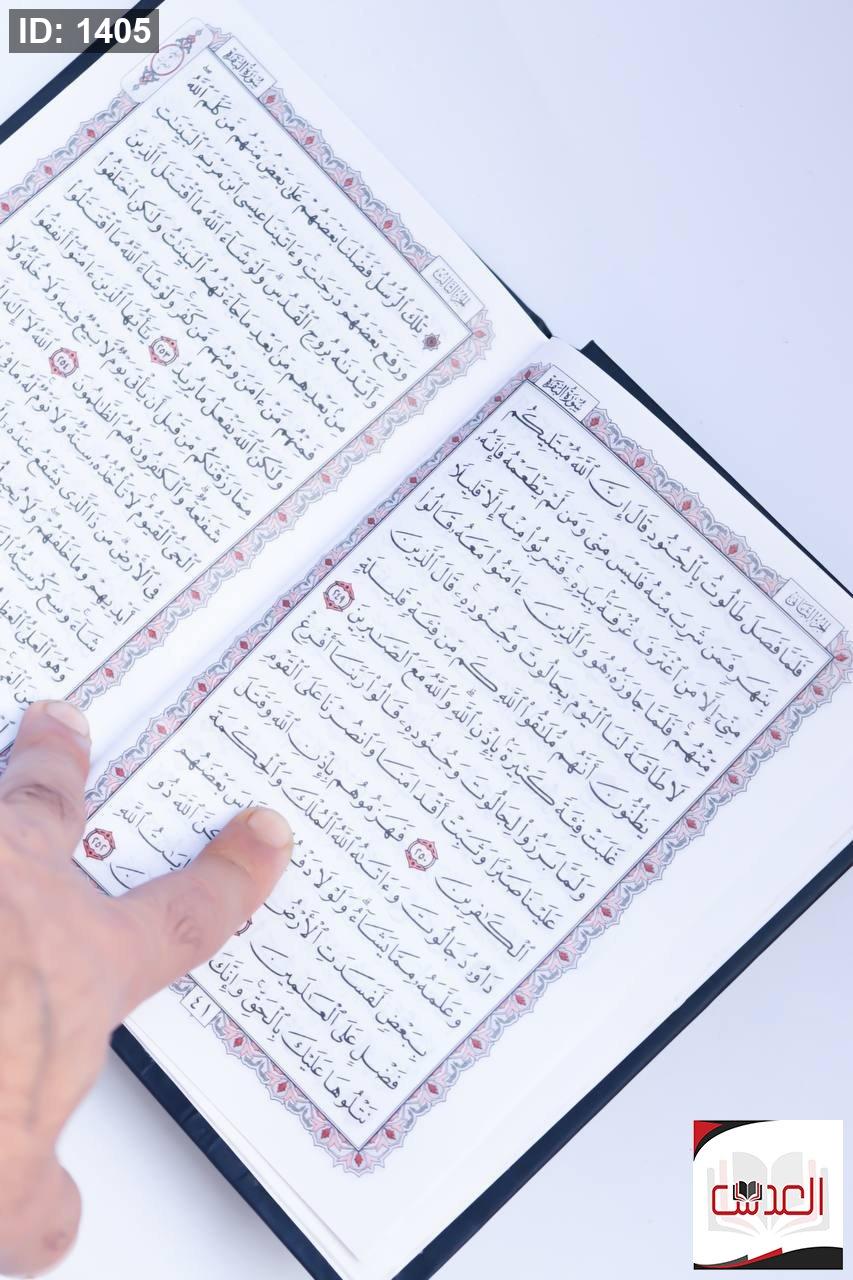 ID: 1405
سورة البقرة
الجزء الثاني
فَلَمَّا فَصَلَ طَالُوتُ بِٱلْجُنُودِ قَالَ إِنَّ ٱللَّهَ مُبْتَلِيكُم
بِنَهَرٍ فَمَن شَرِبَ مِنْهُ فَلَيْسَ مِنِّي وَمَن لَّمْ يَطْعَمْهُ فَإِنَّهُۥ
مِنِّيٓ إِلَّا مَنِ ٱغْتَرَفَ غُرْفَةَۢ بِيَدِهِۦۚ فَشَرِبُوا۟ مِنْهُ إِلَّا قَلِيلًا
مِّنْهُمْۚ فَلَمَّا جَاوَزَهُۥ هُوَ وَٱلَّذِينَ ءَامَنُوا۟ مَعَهُۥ قَالُوا۟
لَا طَاقَةَ لَنَا ٱلْيَوْمَ بِجَالُوتَ وَجُنُودِهِۦۚ قَالَ ٱلَّذِينَ
يَظُنُّونَ أَنَّهُم مُّلَٰقُوا۟ ٱللَّهِ كَم مِّن فِئَةٍ قَلِيلَةٍ
غَلَبَتْ فِئَةً كَثِيرَةَۢ بِإِذْنِ ٱللَّهِۗ وَٱللَّهُ مَعَ ٱلصَّٰبِرِينَ ٢٤٩
وَلَمَّا بَرَزُوا۟ لِجَالُوتَ وَجُنُودِهِۦ قَالُوا۟ رَبَّنَآ أَفْرِغْ
عَلَيْنَا صَبْرًا وَثَبِّتْ أَقْدَامَنَا وَٱنصُرْنَا عَلَى ٱلْقَوْمِ
ٱلْكَٰفِرِينَ ٢٥٠ فَهَزَمُوهُم بِإِذْنِ ٱللَّهِ وَقَتَلَ
دَاوُۥدُ جَالُوتَ وَءَاتَىٰهُ ٱللَّهُ ٱلْمُلْكَ وَٱلْحِكْمَةَ
وَعَلَّمَهُۥ مِمَّا يَشَآءُۗ وَلَوْلَا بَعْضَهُم
بِبَعْضٍ لَّفَسَدَتِ ٱلْأَرْضُ ٱللَّهَ ذُو
فَضْلٍ عَلَى ٱلْعَٰلَمِينَ ٱللَّهِ
نَتْلُوهَا عَلَيْكَ بِٱلْحَقِّۚ وَإِنَّكَ ٢٥٢
٤١
سورة البقرة
الجزء الثالث
تِلْكَ ٱلرُّسُلُ فَضَّلْنَا بَعْضَهُمْ عَلَىٰ بَعْضٍۘ مِّنْهُم مَّن كَلَّمَ ٱللَّهُۖ
وَرَفَعَ بَعْضَهُمْ دَرَجَٰتٍۚ وَءَاتَيْنَا عِيسَى ٱبْنَ مَرْيَمَ ٱلْبَيِّنَٰتِ
وَأَيَّدْنَٰهُ بِرُوحِ ٱلْقُدُسِۗ وَلَوْ شَآءَ ٱللَّهُ مَا ٱقْتَتَلَ ٱلَّذِينَ
مِنۢ بَعْدِهِم مِّنۢ بَعْدِ مَا جَآءَتْهُمُ ٱلْبَيِّنَٰتُ وَلَٰكِنِ ٱخْتَلَفُوا۟
فَمِنْهُم مَّنْ ءَامَنَ وَمِنْهُم مَّن كَفَرَۚ وَلَوْ شَآءَ ٱللَّهُ مَا ٱقْتَتَلُوا۟
وَلَٰكِنَّ ٱللَّهَ يَفْعَلُ مَا يُرِيدُ ٢٥٣ يَٰٓأَيُّهَا ٱلَّذِينَ ءَامَنُوٓا۟ أَنفِقُوا۟
مِمَّا رَزَقْنَٰكُم مِّن قَبْلِ أَن يَأْتِيَ يَوْمٌ لَّا بَيْعٌ فِيهِ وَلَا خُلَّةٌ وَلَا
شَفَٰعَةٌۗ وَٱلْكَٰفِرُونَ هُمُ ٱلظَّٰلِمُونَ ٢٥٤ ٱللَّهُ لَآ إِلَٰهَ إِلَّا
ٱلْحَيُّ ٱلْقَيُّومُۚ لَا تَأْخُذُهُۥ سِنَةٌ وَلَا نَوْمٌۚ لَّهُۥ مَا
فِي ٱلْأَرْضِۗ مَن ذَا ٱلَّذِي يَشْفَعُ عِندَهُۥٓ
أَيْدِيهِمْ وَمَا خَلْفَهُمْۖ وَلَا
شَآءَۚ وَسِعَ كُرْسِيُّهُ
وَهُوَ ٱلْعَلِيُّ
العدس